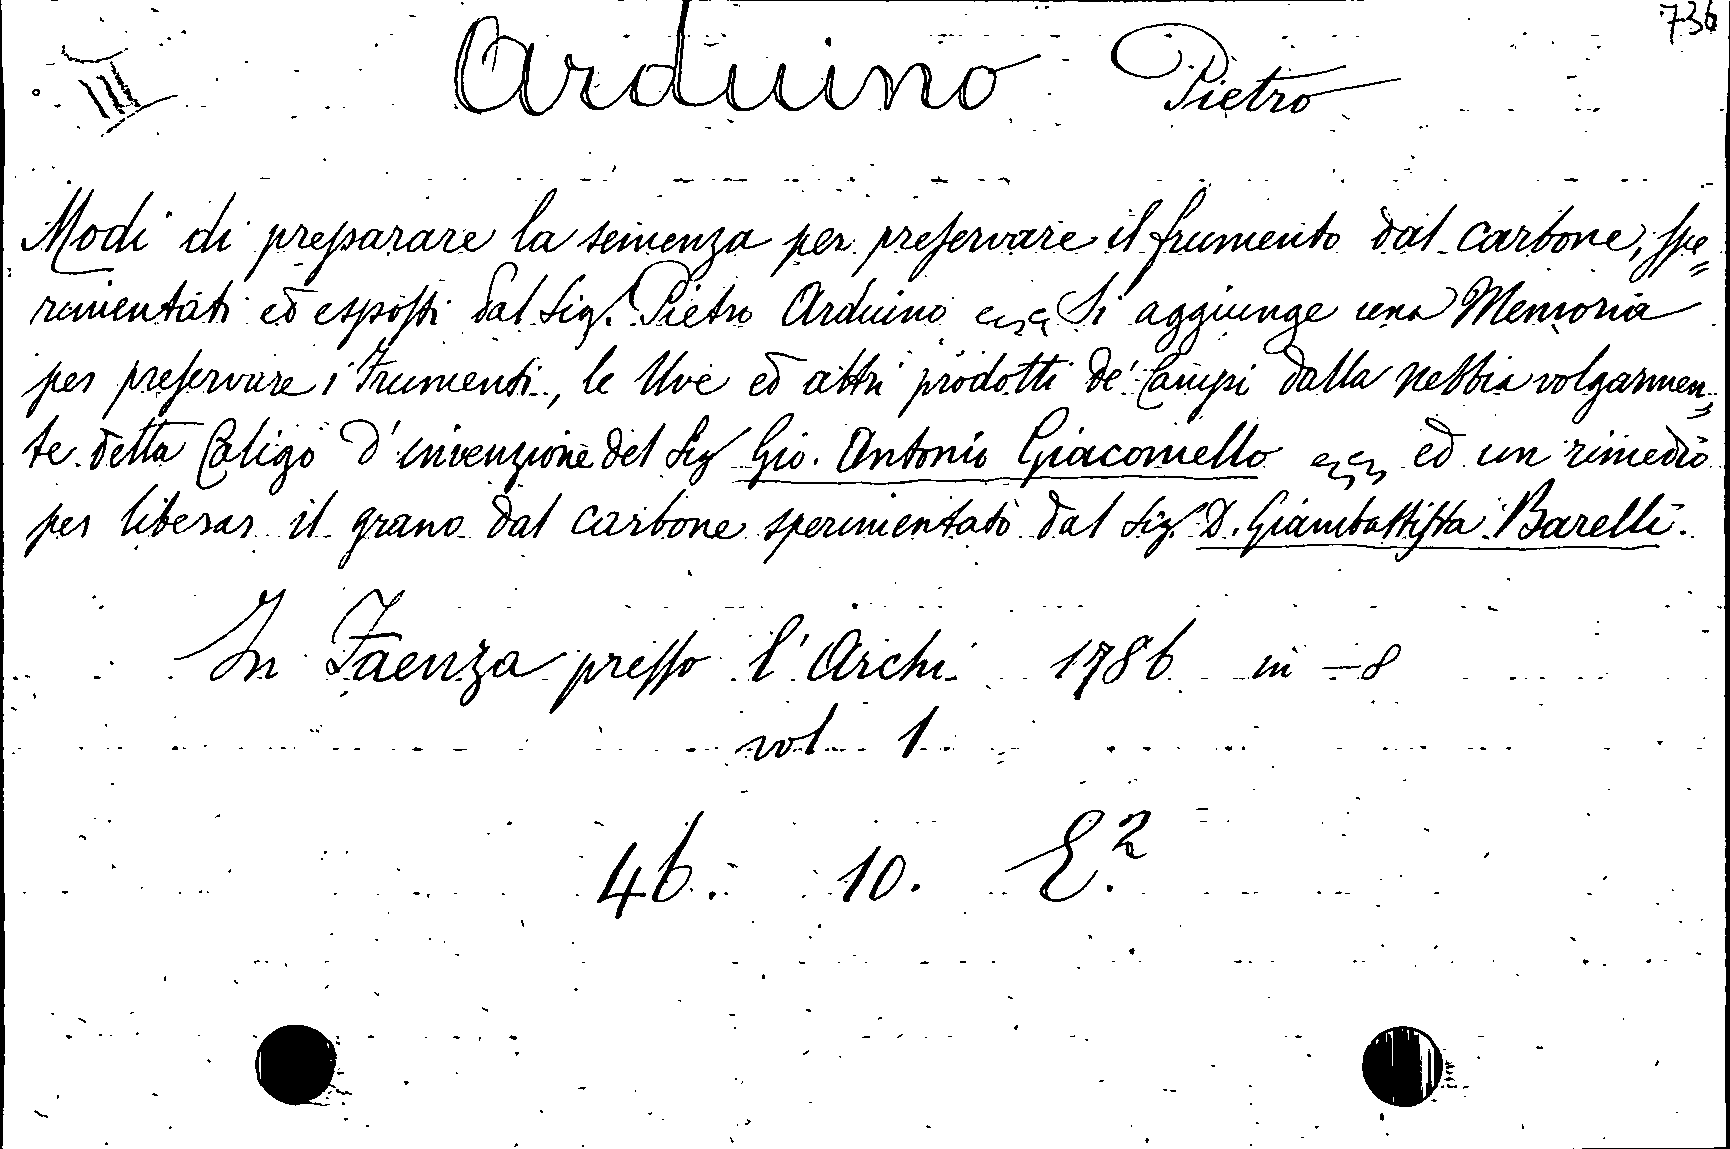 736
III Arduino Pietro
Modi di preparare la semenza per preservare il frumento dal carbone, spe=
rimentati ed esposti dal Sig. Pietro Arduino Si aggiunge una Memoria
per preservare i Frumenti, le Uve ed altri prodotti de' Campi dalla nebbia volgarmen=
te detta Caligo d'invenzione del Sig Gio. Antonio Giacomello ed un rimedio
per liberar il grano dal carbone sperimentato dal Sig. D. Giambattista Barelli.
In Faenza presso l'Archi 1786 in-8
vol 1
46. 10. E.2